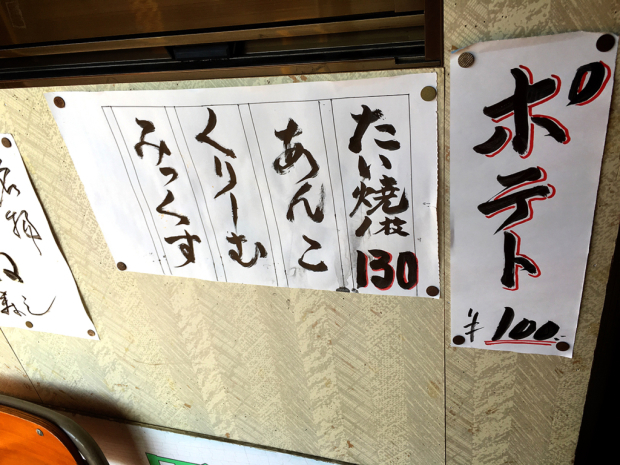 ポテト
¥100.-
たい焼
1枚
130
あんこ
くりーむ
みっくす
名物